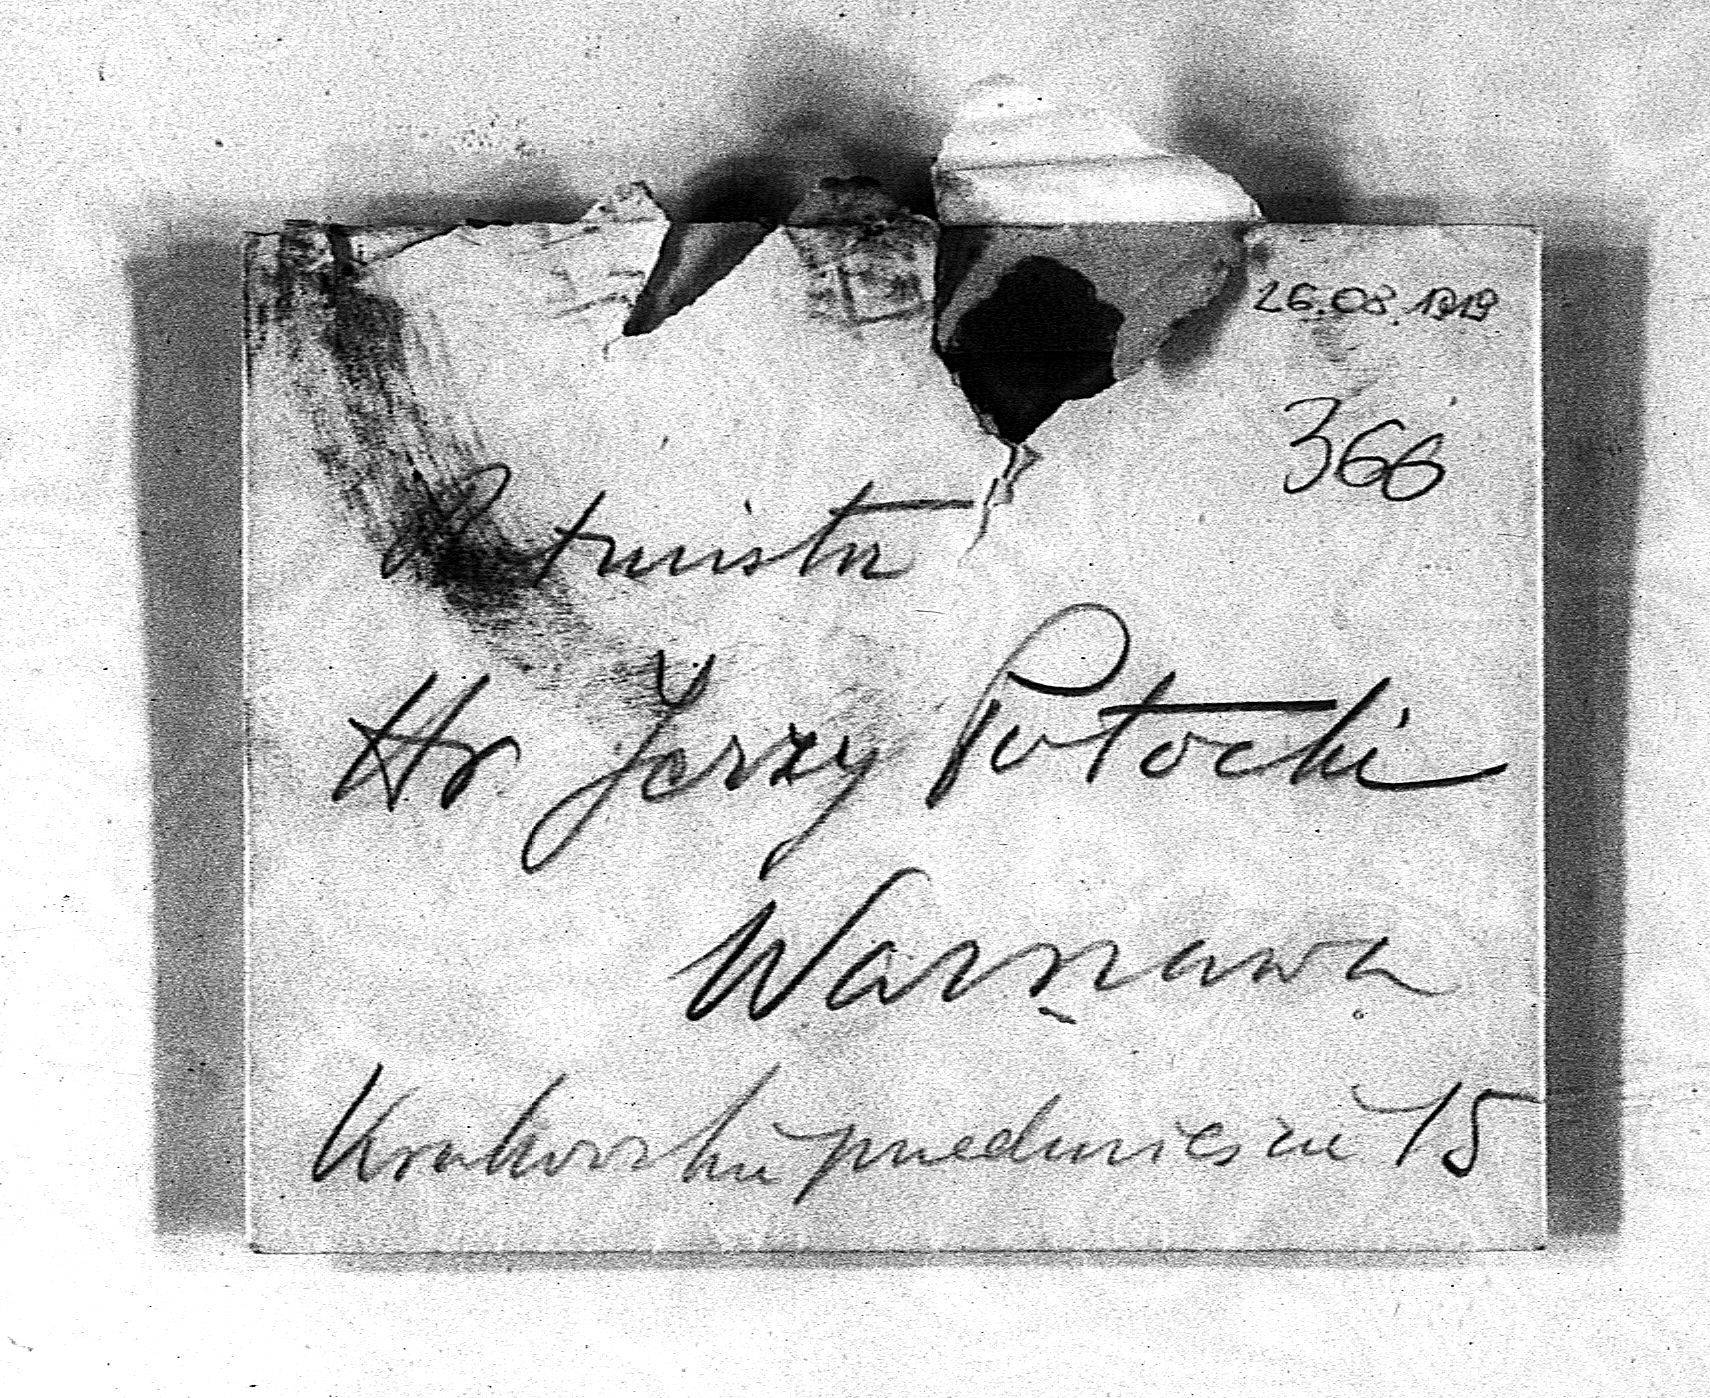 26.08.1919
366
Rotmistrz
Hr. Jerzy Potocki
Warszawa
Krakowskie przedmieście 15